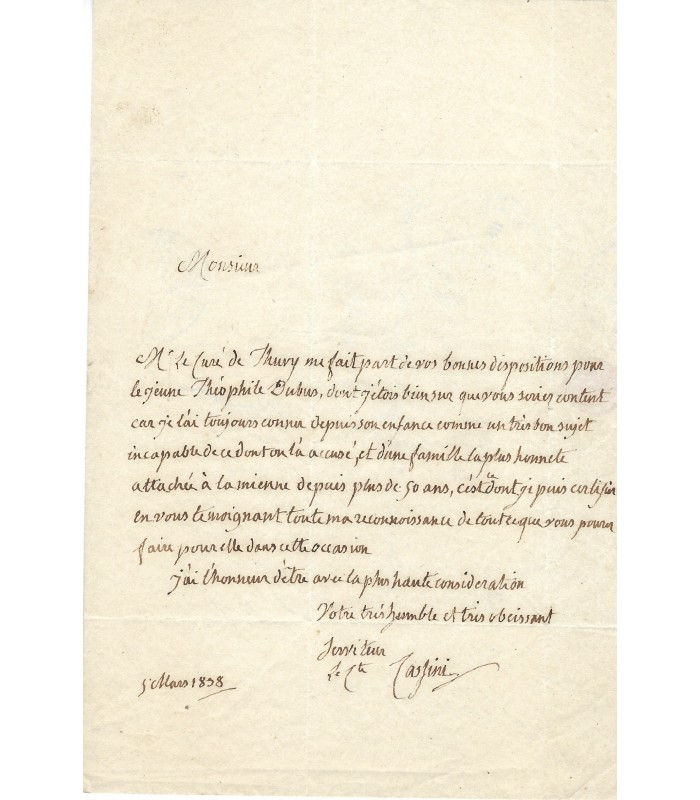 Monsieur
Mr Le Curé de Thury me fait part de vos bonnes dispositions pour
le jeune Théophile Dubus, dont j'étois bien sur que vous seriez content
car je l'ai toujours connu depuis son enfance comme un très bon sujet
incapable de ce dont on l'a accusé, et d'une famille la plus honnete
attachée à la mienne depuis plus de 50 ans, c'est ce dont je puis certifier
en vous temoignant toute ma reconnoissance de tout ce que vous pourrez
faire pour elle dans cette occasion
j'ai l'honneur d'être avec la plus haute consideration
Votre très humble et très obeissant
Serviteur
Le Cte Cassini
5 Mars 1838